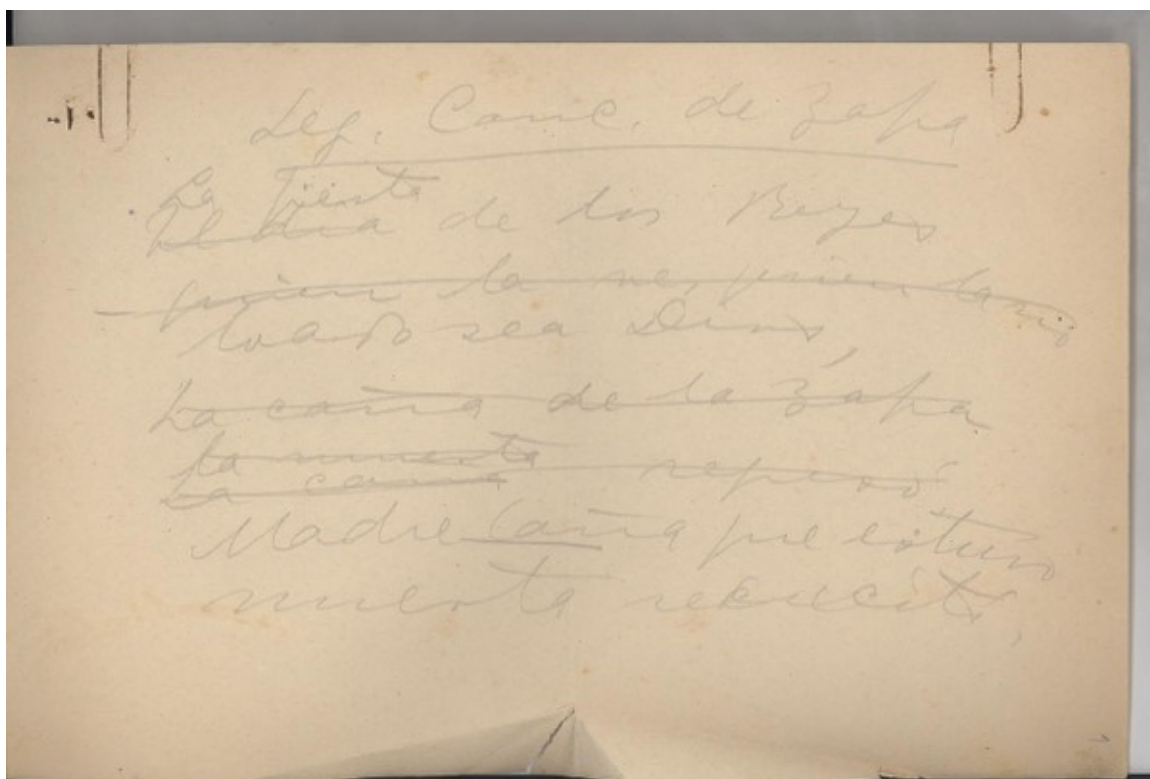 Seg. Canc. de Zafra
La fiesta
El día de los Reyes
quien la ve, quien la vió
loado sea Dios,
La caña de la Zafra
la muerta
La caña regresó
Madre caña que estuvo
muerta resucitó,